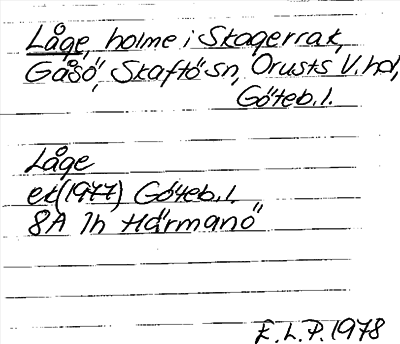 Låge, holme i Skagerrak,
Gåsö, Skaftö sn, Orusts V. hd,
Göteb. l.
Låge
ek (1977) Göteb. l.
8A 1h Härmanö
E. L. P. 1978